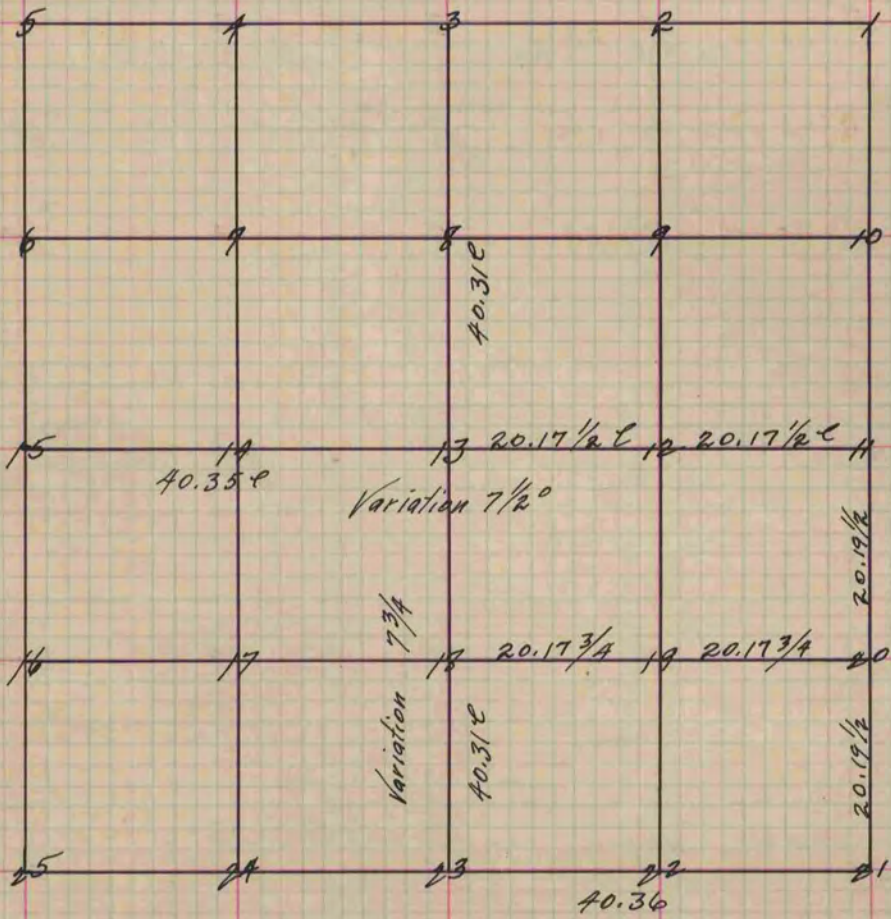 5 4 3 2 1
6 7 8 9 10
40.31 C
15 14 13 20.17 1/2 C 12 20.17 1/2 C 11
40.35 C
Variation 7 1/2°
20.19 1/2
Variation 7 3/4
16 17 18 20.17 3/4 19 20.17 3/4 20
40.31 C
20.19 1/2
25 24 23 22 21
40.36